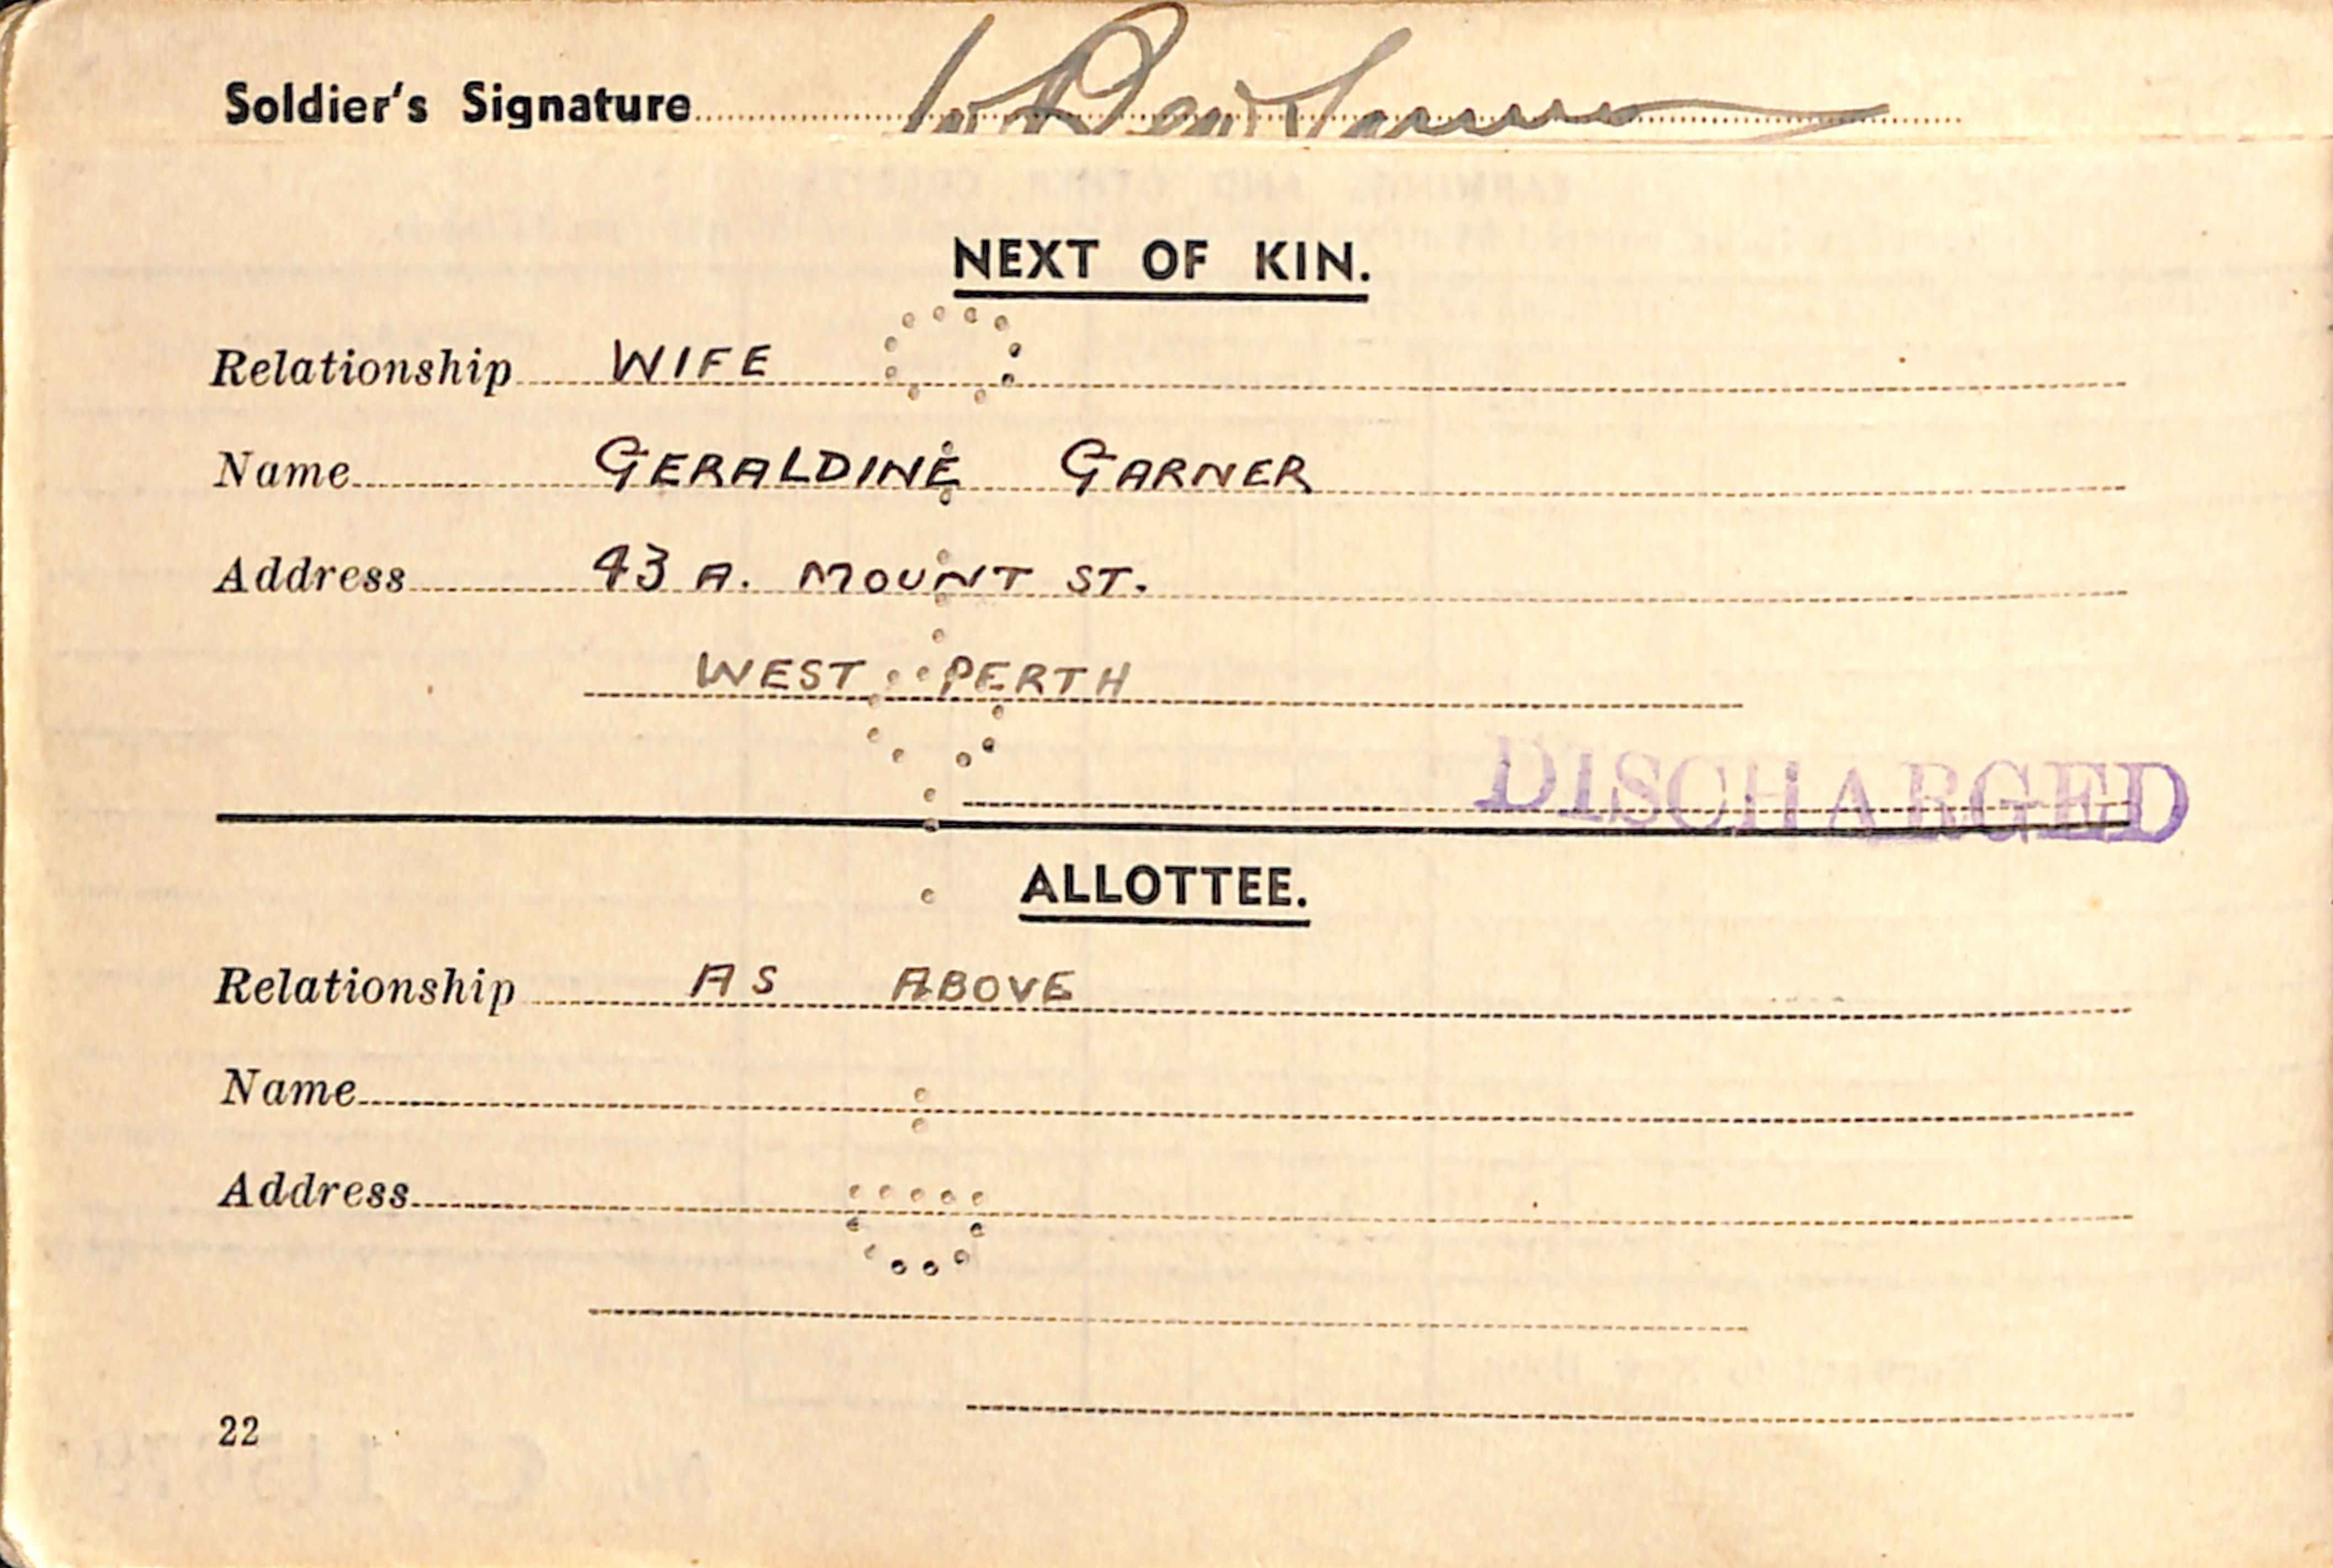 Soldier's Signature
NEXT OF KIN.
Relationship WIFE
Name GERALDINE GARNER
Address 43 A. MOUNT ST.
WEST PERTH
DISCHARGED
ALLOTTEE.
Relationship AS ABOVE
Name
Address
22